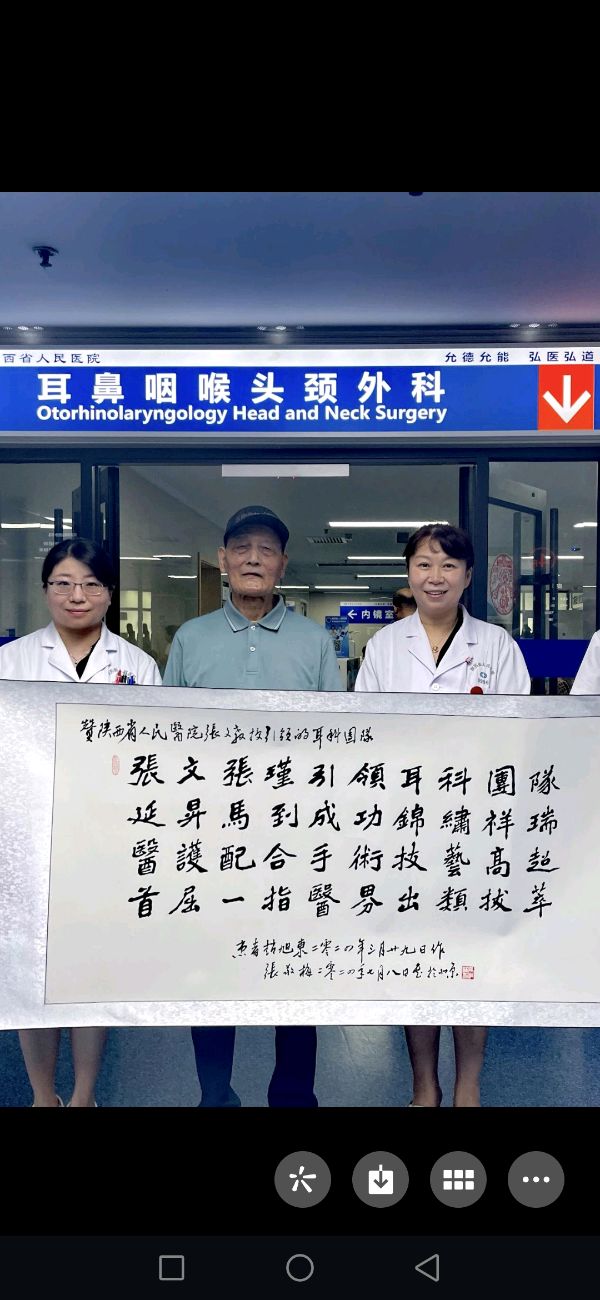 西省人民医院
允德允能 弘医弘道
耳鼻咽喉头颈外科
Otorhinolaryngology Head and Neck Surgery
内镜室
贊陝西省人民醫院張文教授引领的耳科團隊
張文張瑾引領耳科團隊
延昇馬到成功錦繡祥瑞
醫護配合手術技藝高超
首屈一指醫界出類拔萃
患者 旭東二零二四年三月廿九日作
張 梅二零二四年七月八日 於北京